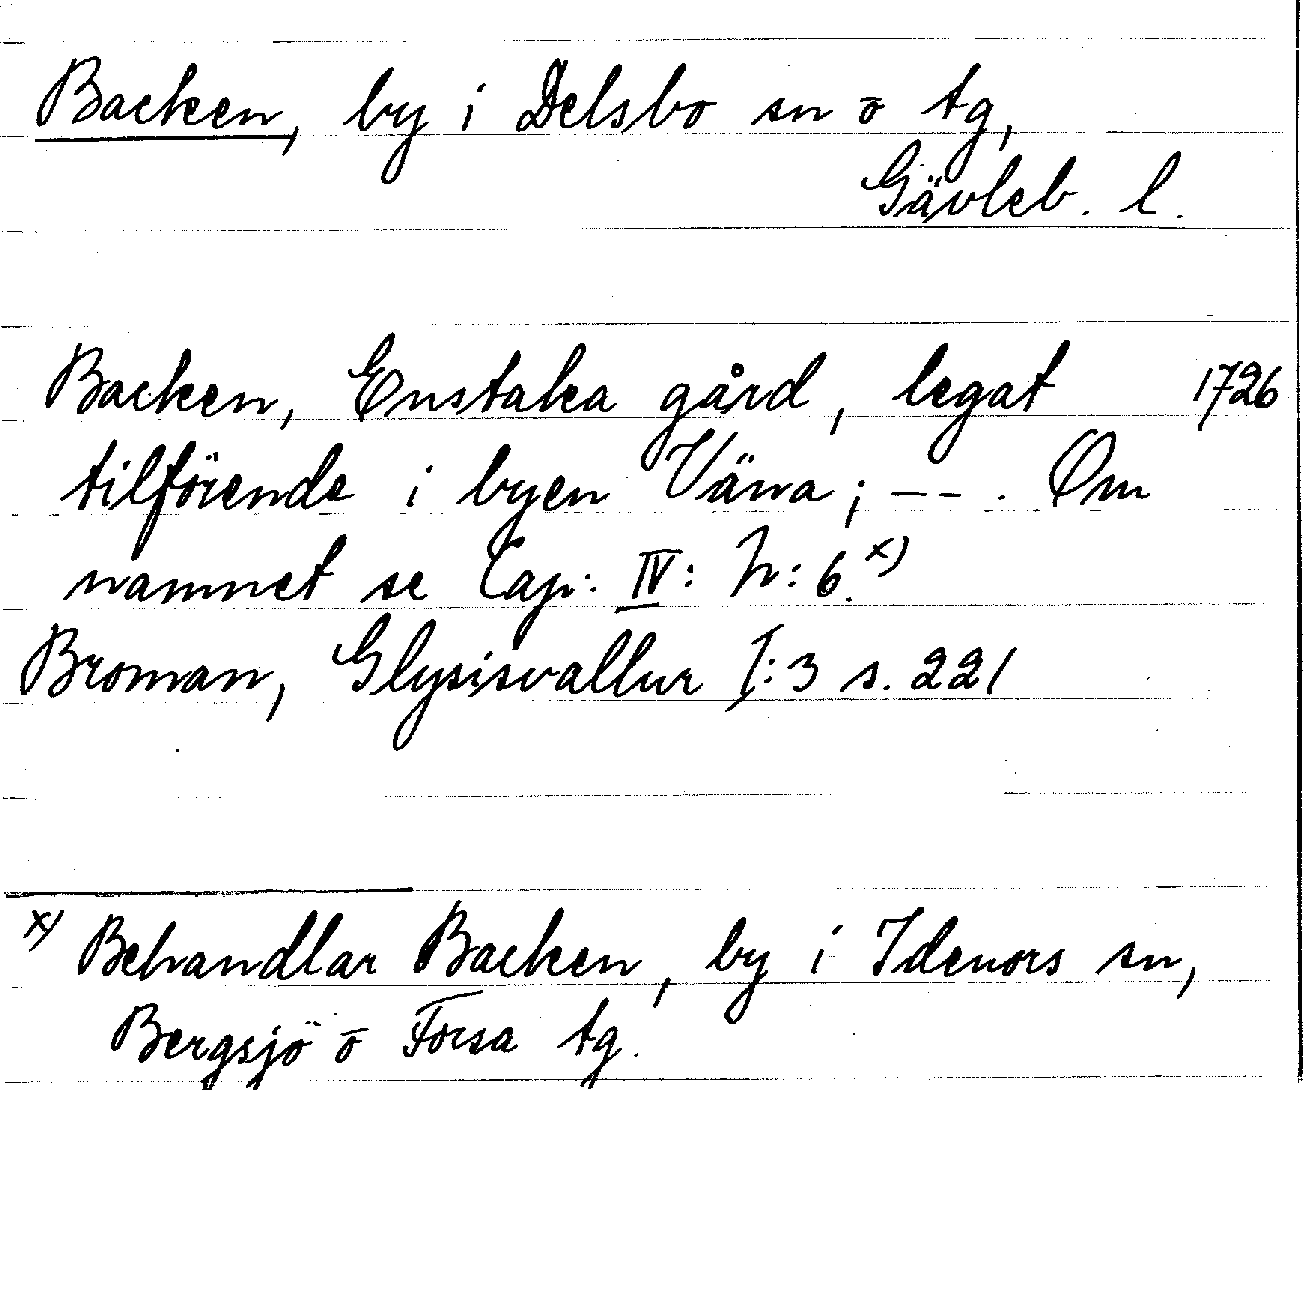 Backen, by i Delsbo sn o tg,
Gävleb. l.
Backen, Enstaka gård, legat 1726
tilförende i byen Väna; -- . Om
namnet se Cap: IV: N: 6.x)
Broman, Glysisvallur I:3 s. 221
x) Behandlar Backen, by i Idenors sn,
Bergsjö o Forsa tg.